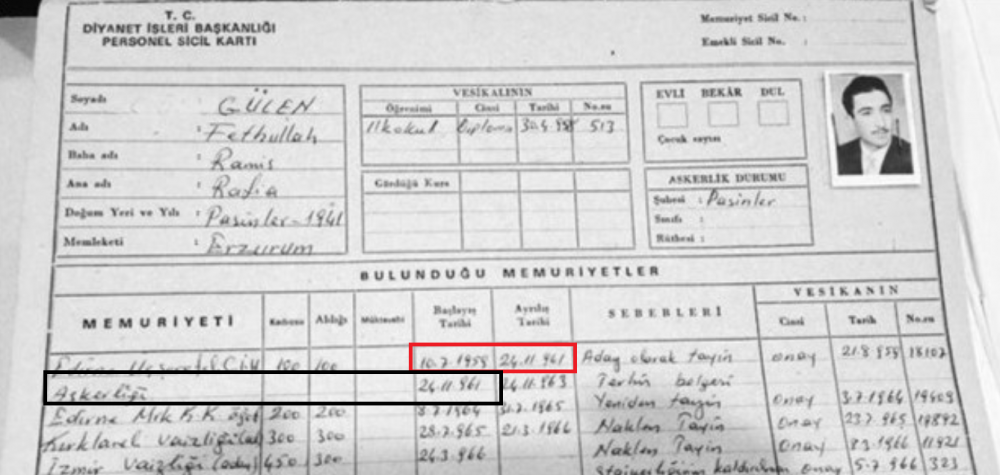 T. C.
DİYANET İŞLERİ BAŞKANLIĞI
PERSONEL SİCİL KARTI
Memuriyet Sicil No. :
Emekli Sicil No. :
Soyadı : GÜLEN
Adı : Fethullah
Baba adı : Ramis
Ana adı : Rafia
Doğum Yeri ve Yılı : Pasinler-1941
Memleketi : Erzurum
VESİKALININ
Öğrenimi Cinsi Tarihi No.su
İlkokul Diploma 513
Gördüğü Kurs
EVLİ BEKÂR DUL
Çocuk sayısı
ASKERLİK DURUMU
Şubesi : Pasinler
Sınıfı :
Rütbesi :
BULUNDUĞU MEMURİYETLER
MEMURİYETİ Kadrosu Aldığı Müktesebi Başlayış Tarihi Ayrılış Tarihi SEBEBLERİ VESİKANIN
Cinsi Tarih No.su
Edirne 100 100 24.11.961 Aday olarak tayin onay 21.8.959 18107
Askerliği 24.11.961 24.11.963 Terhis belgesi
Edirne Mrk K.K. öğrt 200 200 8.7.1964 31.7.1965 Yeniden tayin onay 3.7.1964
Kırklareli Vaizliği 300 300 28.7.965 21.3.1966 Naklen Tayin onay 23.7.965 19892
İzmir Vaizliği 450 300 24.3.966 Naklen Tayin onay 8.3.1966 11921
onay 5.7.966 323